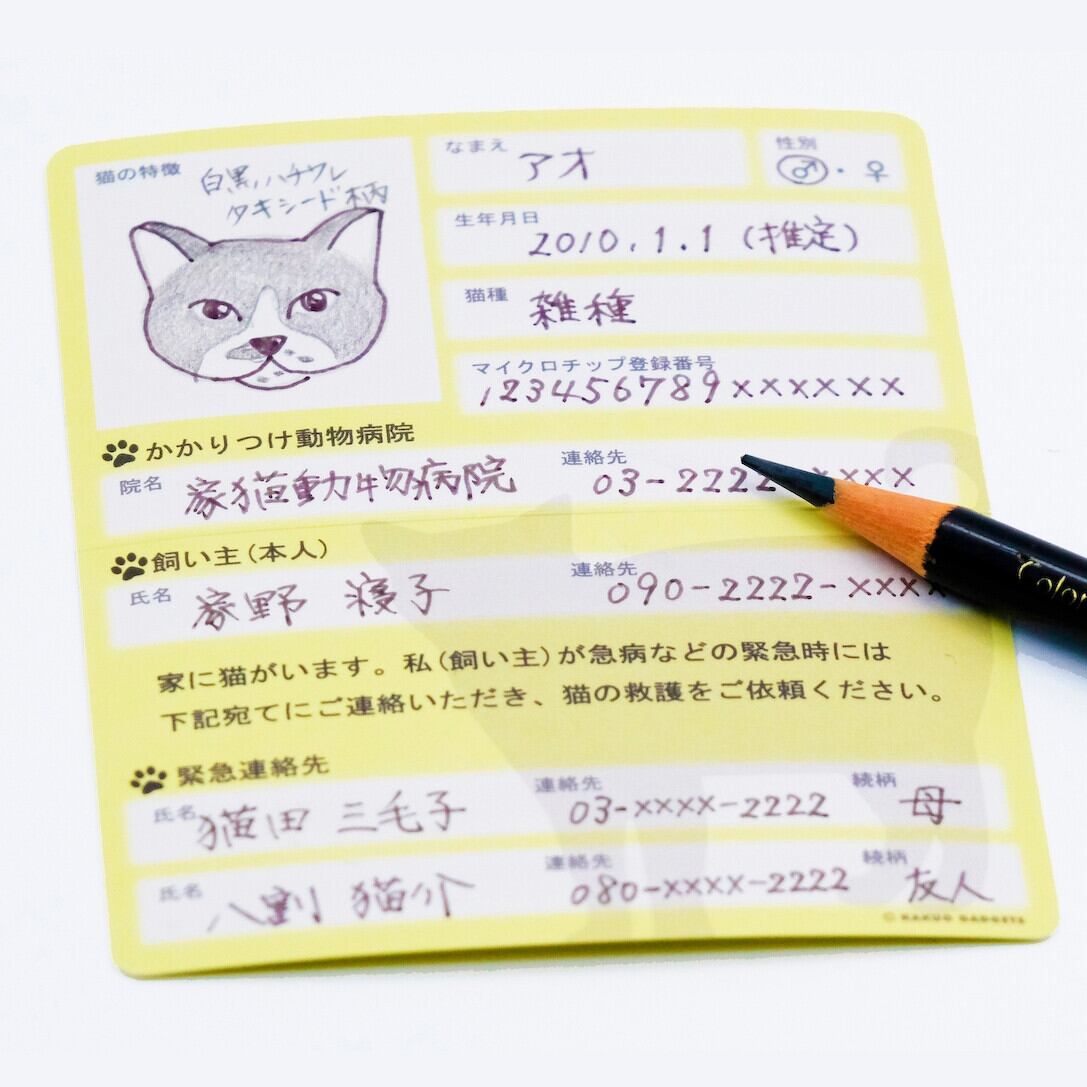 猫の特徴
白黒ハチワレ
タキシード柄
なまえ アオ
性別 ♂・♀
生年月日 2010.1.1(推定)
猫種 雑種
マイクロチップ登録番号
123456789××××××
かかりつけ動物病院
院名 家猫動物病院 連絡先 03-2222 ××××
飼い主(本人)
氏名 家野 寝子 連絡先 090-2222-×××
家に猫がいます。私(飼い主)が急病などの緊急時には
下記宛てにご連絡いただき、猫の救護をご依頼ください。
緊急連絡先
氏名 猫田 三毛子 連絡先 03-××××-2222 続柄 母
氏名 八割 猫介 連絡先 080-××××-2222 続柄 友人
© KAKUO GADGETS
Color